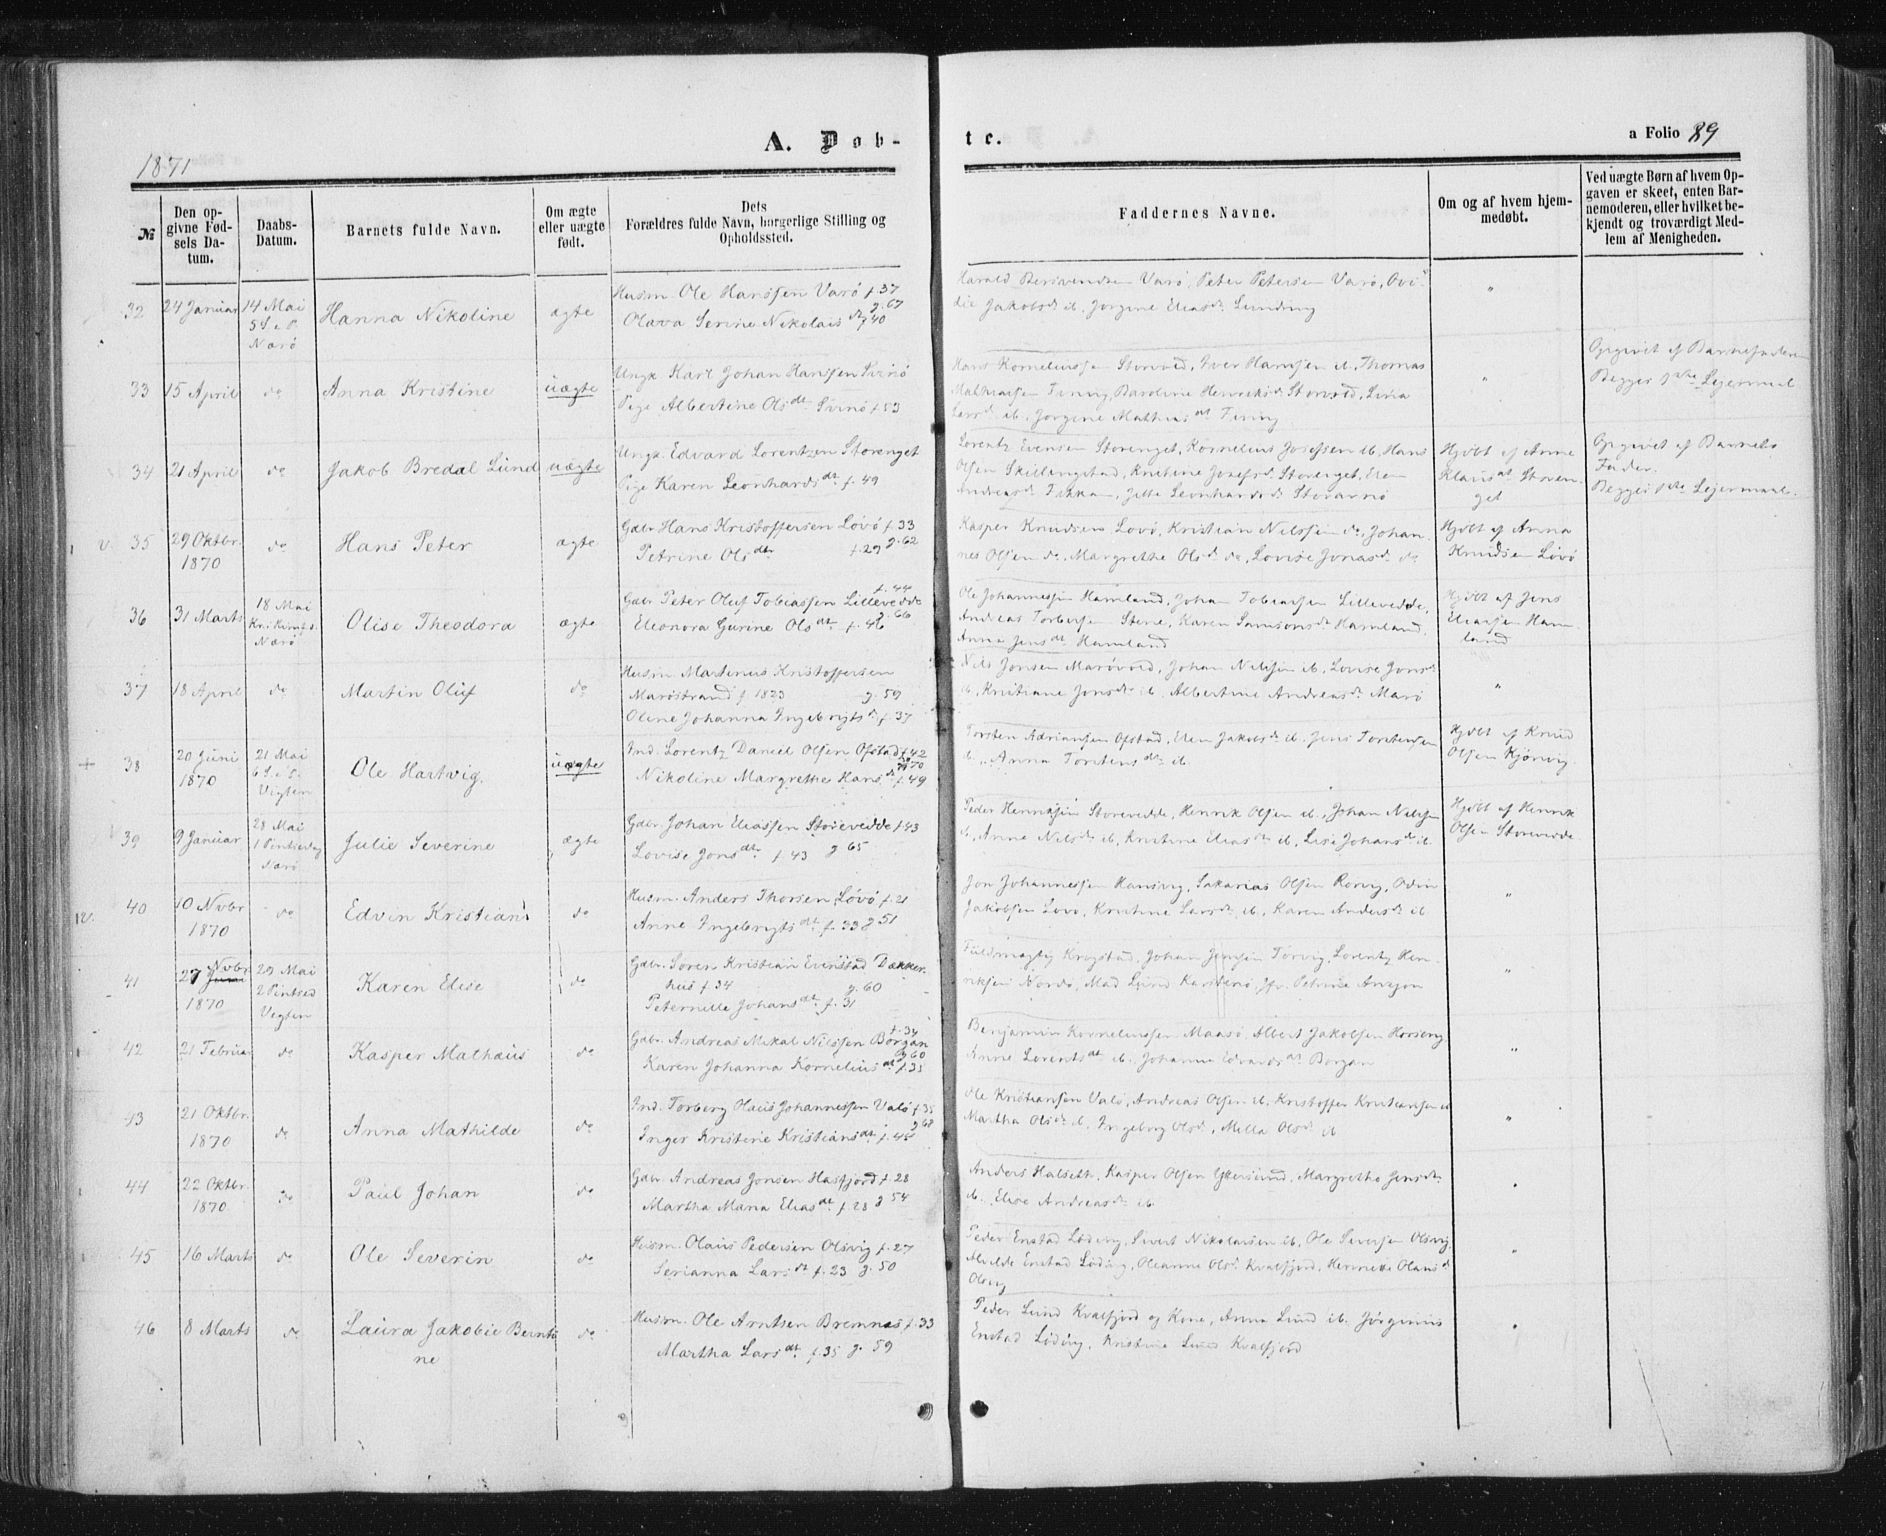 1871
A. Døb-
te.
a Folio 89
№
Den op-
givne Fød-
sels Da-
tum.
Daabs-
Datum.
Barnets fulde Navn.
Om ægte
eller uægte
født.
Dets
Forældres fulde Navn, borgerlige Stilling og
Opholdssted.
Faddernes Navne.
Om og af hvem hjem-
medøbt.
Ved uægte Børn af hvem Op-
gaven er skeet, enten Bar-
nemoderen, eller hvilket be-
kjendt og troværdigt Med-
lem af Menigheden.
32 24 Januar 14 Mai Hanna Nikoline ægte
5 S. e. P.
Nærø
Husm. Ole Hanssen Varø f. 37
g. 67
Olava Serine Nikolais dt f 40
Harald Varø, Peter Petersen Varø, Ovi-
die Jakobsd. ib. Jørgine Eliasd.
"
33 15 April do Anna Kristine uægte
Ungk. Karl Johan Hanssen Svinø
Pige Albertine Ols dt Svinø f 53
Hans Korneliussen Storved, Iver Hanssen ib. Thomas
Mathiassen Finvig, Baroline Henriksd. Storved, Lina
Larsd. ib. Jørgine Mathias dt Finvig
"
Opgivet af Barnefaderen
Begges 1ste Leiermaal
34 21 April do Jakob Bredal Lund uægte
Ungk. Edvard Lorentzen Storenget
Pige Karen Leonhards dt. f. 49
Lorentz Evensen Storenget, Kornelius Josefsen ib, Hans
Olsen Skillingstad, Kristine Josefsd. Storenget, Elen
Andreasd. Jitte Leonhardsd.
Hjdbt af Anne
Klausdt Storen-
get
Opgivet af Barnets
Fader.
Begges 1ste Leiermaal.
v. 35 29 Oktbr. do Hans Peter ægte
1870
Gdbr. Hans Kristoffersen Løvø f. 33
g. 62
Petrine Ols dtr f. 29
Kasper Knudsen Løvø, Kristian Nilssen do, Johan-
nes Olsen do, Margrethe Olsd. do, Lovise Jonasd. do
Hjdbt af Anna
Knudsen Løvø
36 31 Marts 18 Mai Olise Theodora ægte
Kri Himf.
Nærø
f. 44
Gdbr. Peter Oluf Tobiassen Lillevedde
g. 66
Eleonora Gurine Ols dt. f. 46
Ole Johannessen Hamland, Johan Tobiassen Lillevedde,
Andreas Torbersen Stene, Karen Samsonsd. Hamland,
Anna Jensdt Hamland
Hjdbt af Jens
Eliassen Ham-
land
37 18 April do Martin Oluf do
Husm. Martinus Kristoffersen
Marøstrand f. 1823 g. 59
Oline Johanna Ingebrigts d. f. 37
Nils Jonsen Johan Nilssen ib. Lovise Jonsd
ib, Kristiane Jonsd. ib. Albertine Andreasd. Marø
"
+ 38 20 Juni 21 Mai Ole Hartvig. uægte
1870 6 S. e. P.
Vigten
Ind. Lorentz Daniel Olsen Ofstad f. 42
70
Nikoline Margrethe Hans d. f. 49
Torsten Adriansen Ofstad, Elen Jakobsd. ib. Jens Torstensen
ib., Anna Torstens dtr. ib.
Hjdbt af Knud
Olsen Kjønvig.
39 9 Januar 28 Mai Julie Severine ægte
1 Pintsedag
Nærø
Gdbr. Johan Eliassen Storevedde f 43
Lovise Jons dtr f 43 g 65
Peder Henriksen Storevedde, Henrik Olsen ib., Johan Nilssen
ib, Anne Nilsd. ib, Kristine Eliasd. ib, Lise Johansd. ib.
Hjdbt af Henrik
Olsen Storevedde
40 10 Nvbr do Edvin Kristian do
1870
Husm. Anders Thorsen Løvø f. 21
Anne Ingebrigts dt. f. 33 g 51
Jon Johannessen Hansvig, Sakarias Olsen Rørvig, Odin
Jakobsen Løvø, Kristine Larsd. ib, Karen Andersd. ib
"
41 27 Nvbr. 29 Mai Karen Elise do
1870 2 Pintsed
Vigten
Gdbr. Søren Kristian Evenstad Dækker-
hus f. 34 g. 60
Peternille Johans dt. f. 31
Fuldmægtig Krogstad, Johan Jensen Torvig, Lorentz Hen-
riksen Nordø, Mad Lund Petrine
"
42 21 Februar do Kasper Mathæus do
f. 34
Gdbr. Andreas Mikal Nilssen Borgan
g 60
Karen Johanna Kornelius dt f. 35
Benjamin Korneliussen Maasø, Albert Jakobsen
Anne Lorents dt ib. Johanna Edvards dt Borgan
"
43 21 Oktbr. do Anna Mathilde do
1870
Ind. Torberg Olaus Johannessen Valø f. 35
g 68
Inger Kristine Kristians dt. f. 45
Ole Kristiansen Valø, Andreas Olsen ib. Kristoffer Kristiansen ib
Martha Olsd. ib, Ingeborg Olsd., Milla Olsd. ib
"
44 22 Oktbr. do Paul Johan do
1870
Gdbr. Andreas Jonsen Hasfjord f. 28
Martha Maria Elias dt f. 28 g 54
Anders Halseth, Kasper Olsen Yttersund, Margrethe Jensdt.
ib. Elise Andreasd. ib.
"
45 16 Marts do Ole Severin do
Husm. Olaus Pedersen Olsvig f. 27
Serianna Lars dt f. 23 g. 50
Peder Enstad Lødvig, Sivert Nikolaisen ib, Ole Seversen Olsvig,
Alvilde Enstad Lødvig, Oleanne Olsd. Kvalfjord, Henriette Olausd
Olsvig
"
46 8 Marts do Laura Jakobie Bernti- do
ne
Husm. Ole Arntsen Bremnes f. 33
Martha Lars dt. f. 35 g. 59
Peder Lund Kvalfjord og Kone, Anna Lund ib. Jørginus
Enstad Lødvig, Kristine Lund Kvalfjord
"